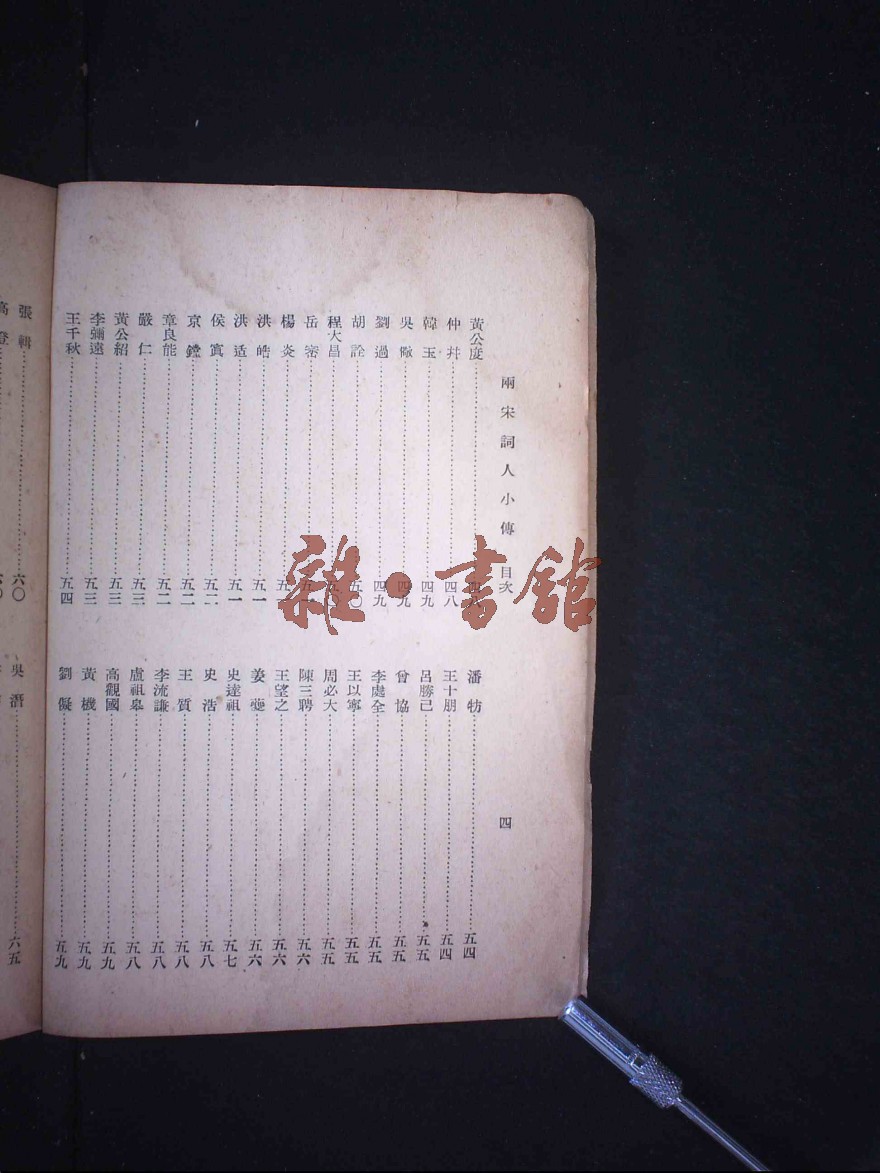 兩宋詞人小傳 目次 四
黃公度 四八
仲并 四八
韓玉 四九
吳儆 四九
劉過 四九
胡詮 五〇
程大昌 五〇
岳密
楊炎 五一
洪皓 五一
洪适 五一
侯寘 五二
京鏜 五二
章良能 五二
嚴仁 五三
黃公紹 五三
李彌遠 五三
王千秋 五四
潘牥 五四
王十朋 五四
呂勝己 五五
曾協 五五
李處全 五五
王以寧 五五
周必大 五五
陳三聘 五六
王望之 五六
姜夔 五六
史達祖 五七
史浩 五八
王質 五八
李流謙 五八
盧祖皋 五八
高觀國 五九
黃機 五九
劉儗 五九
張輯 六〇
高登 六〇
吳潛 六五
雜·書館